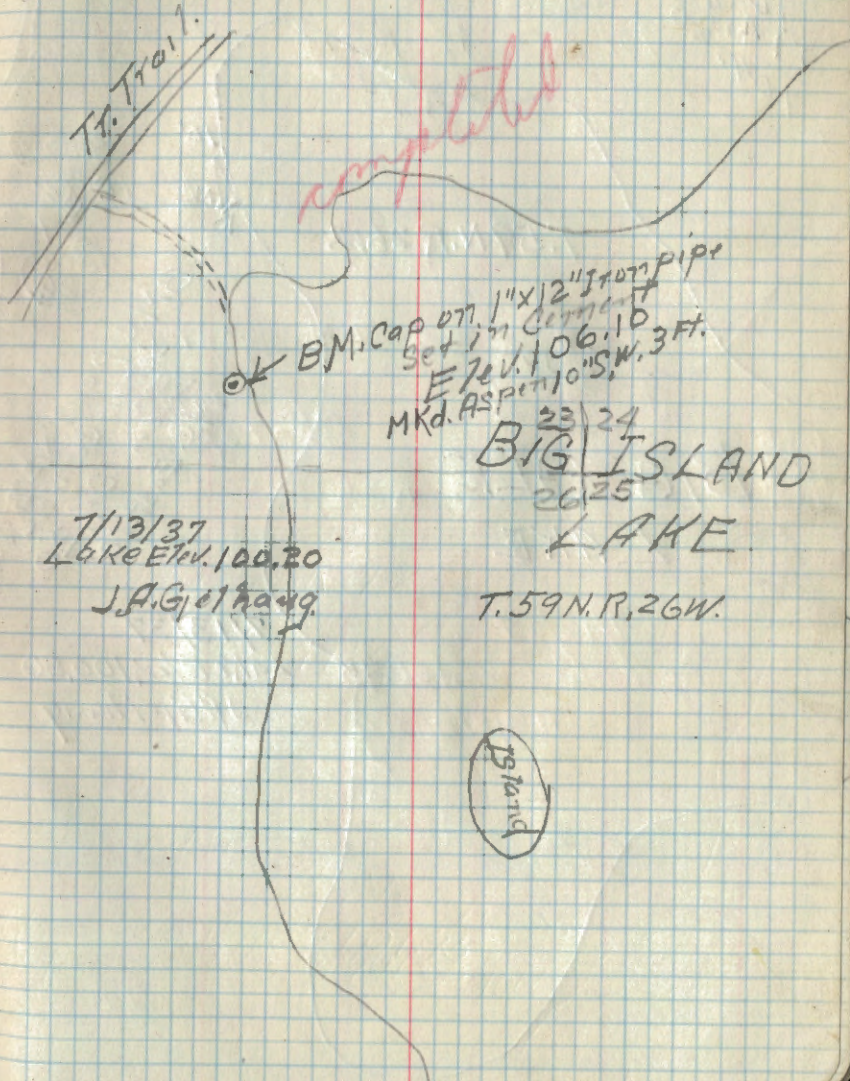 Tr. Trail.
completed
B.M. Cap on 1"x12" Iron pipe
Set in Cement
Elev. 106.10
Mkd. Aspen 10" S.W. 3 Ft.
23 24
BIG ISLAND
26 25
LAKE
7/13/37
Lake Elev. 100.20
J.A.
T.59N.R.26W.
Island